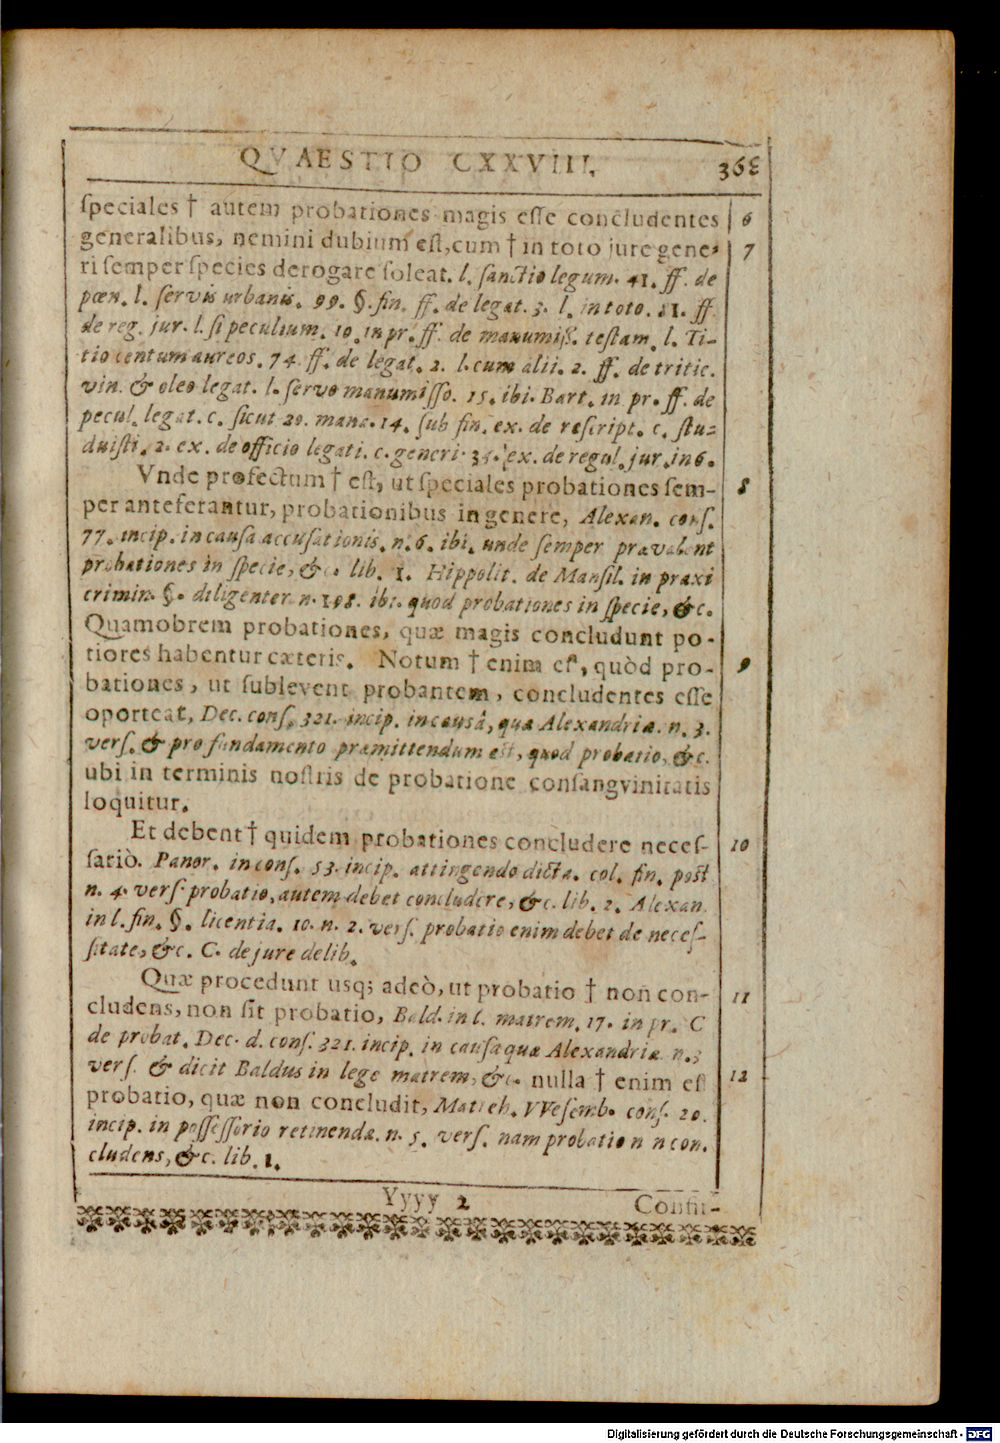 QVAESTIO CXXVIII. 363
speciales † autem probationes magis esse concludentes 6
generalibus, nemini dubium est, cum † in toto jure gene- 7
ri semper species derogare soleat. l. sanctio legum. 41. ff. de
pœn. l. servis urbanis. 99. §. fin. ff. de legat. 3. l. in toto. 81. ff.
de reg. jur. l. si peculium. 10. in pr. ff. de manumiß. testam. l. Ti-
tio centum aureos. 74. ff. de legat. 2. l. cum alii. 2. ff. de tritic.
vin. & oleo legat. l. servo manumisso. 15. ibi. Bart. in pr. ff. de
pecul. legat. c. sicut 20. mana. 14. sub fin. ex. de rescript. c. stu-
duisti. 2. ex. de officio legati. c. generi. 34. ex. de regul. jur. in 6.
Vnde profectum † est, ut speciales probationes sem- 8
per anteferantur, probationibus in genere, Alexan. cons.
77. incip. in causa accusationis. n. 6. ibi. unde semper prævalent
probationes in specie, &c. lib. 1. Hippolit. de Mansil. in praxi
crimin. §. diligenter n. 198. ibi. quod probationes in specie, &c.
Quamobrem probationes, quæ magis concludunt po-
tiores habentur cæteris. Notum † enim est, quòd pro- 9
bationes, ut sublevent probantem, concludentes esse
oporteat, Dec. cons. 321. incip. in causâ, quæ Alexandriæ. n. 3.
vers. & pro fundamento præmittendum est, quod probatio, &c.
ubi in terminis nostris de probatione consangvinitatis
loquitur.
Et debent † quidem probationes concludere neces- 10
sariò. Panor. in cons. 53. incip. attingendo dicta. col. fin. post
n. 4. vers. probatio, autem debet concludere, &c. lib. 2. Alexan.
in l. fin. §. licentia. 10. n. 2. vers. probatio enim debet de neces-
sitate, &c. C. de jure delib.
Quæ procedunt usq; adeò, ut probatio † non con- 11
cludens, non sit probatio, Bald. in l. matrem. 17. in pr. C
de probat. Dec. d. cons. 321. incip. in causa quæ Alexandriæ n. 3
vers. & dicit Baldus in lege matrem, &c. nulla † enim est 12
probatio, quæ non concludit, Matth. VVesemb. cons. 20.
incip. in possessorio retinendæ. n. 5. vers. nam probatio n n con.
cludens, &c. lib. 1.
Yyyy 2 Confir-
Digitalisierung gefördert durch die Deutsche Forschungsgemeinschaft - DFG